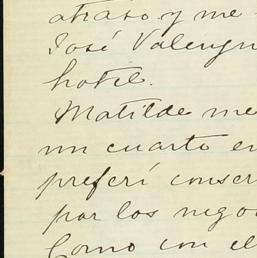 atraso y me
José Valenzu
hotel.
Matilde me
un cuarto en
preferí conser
por los nego
Como con el